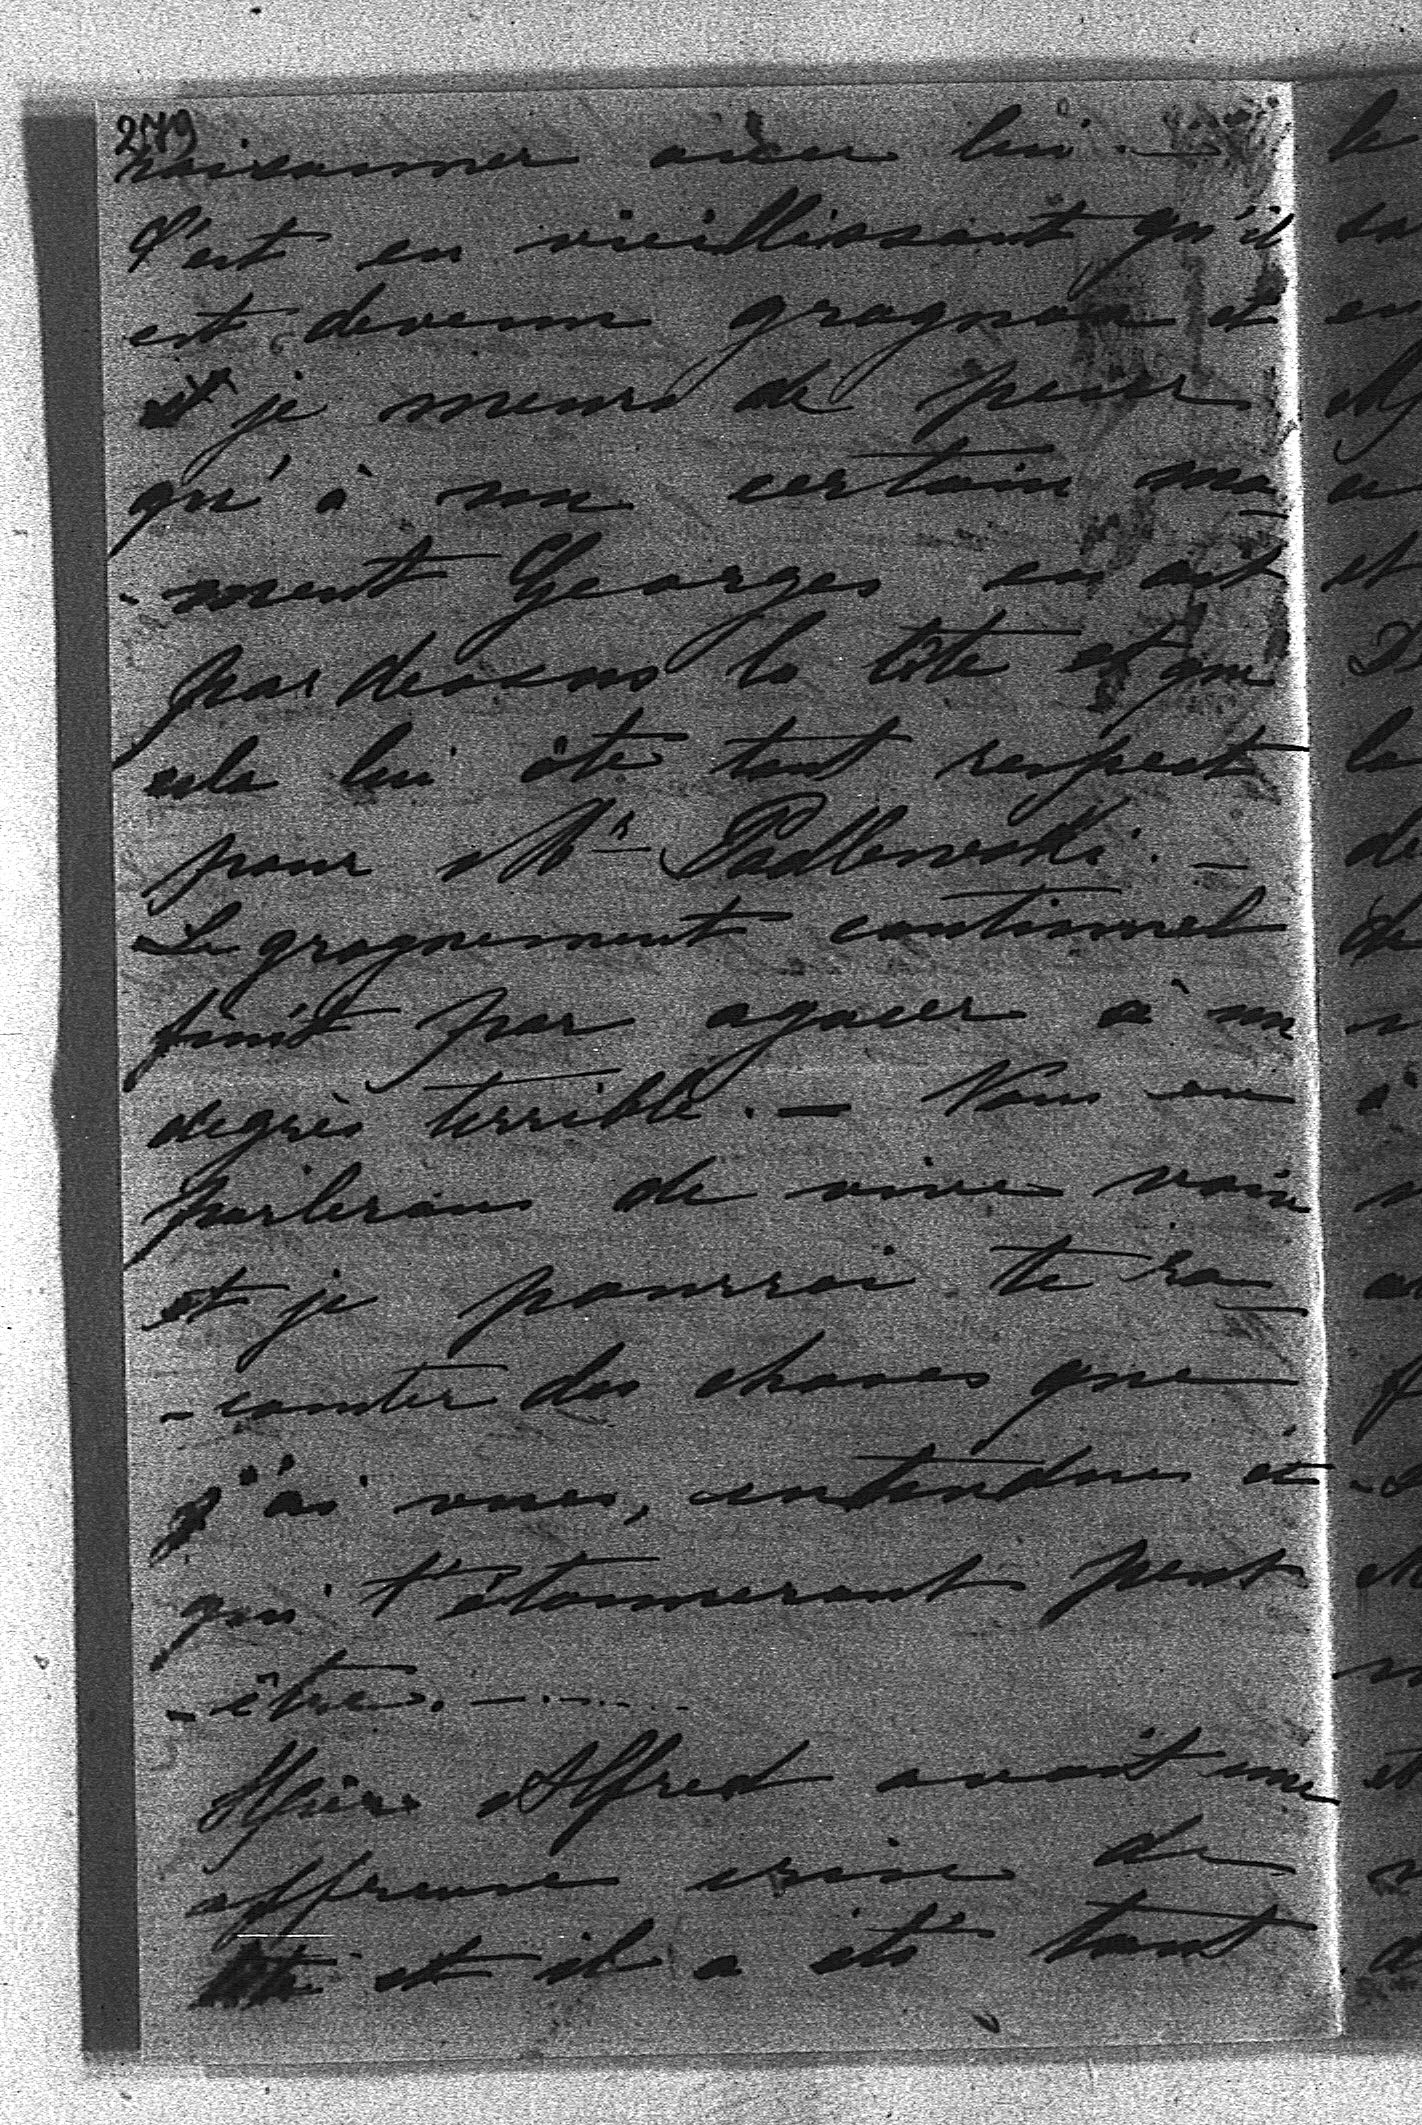 279
raisonner avec lui. —
C'est en vieillissant qu'il
est devenu grognon et
et je meurs de peur
qu'à un certain mo-
-ment Georges en ait
par dessus la tête et que
cela lui ôte tout respect
pour Mr Padlewski. —
Le grognement continuel
finit par agacer à un
degrès terrible. — Nous en
parlerons de vive voix
et je pourrai te ra-
-conter des choses que
j'ai vues, entendues et
qui t'étonneront peut
-être. — . . . . .
Hier Alfred avait une
affreuse crise de
et il a été tout